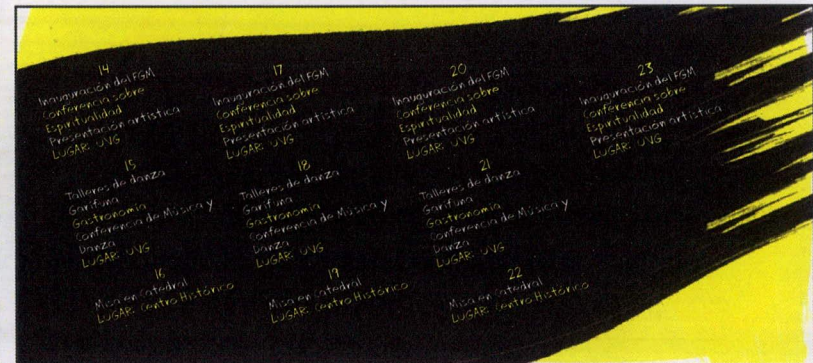 14
Inauguración del FGM
Conferencia sobre
Espiritualidad
Presentación artística
LUGAR: UVG
15
Talleres de danza
Garífuna
Gastronomía
Conferencia de Música y
Danza
LUGAR: UVG
16
Misa en Catedral
LUGAR: Centro Histórico
17
Inauguración del FGM
Conferencia sobre
Espiritualidad
Presentación artística
LUGAR: UVG
18
Talleres de danza
Garífuna
Gastronomía
Conferencia de Música y
Danza
LUGAR: UVG
19
Misa en Catedral
LUGAR: Centro Histórico
20
Inauguración del FGM
Conferencia sobre
Espiritualidad
Presentación artística
LUGAR: UVG
21
Talleres de danza
Garífuna
Gastronomía
Conferencia de Música y
Danza
LUGAR: UVG
22
Misa en Catedral
LUGAR: Centro Histórico
23
Inauguración del FGM
Conferencia sobre
Espiritualidad
Presentación artística
LUGAR: UVG